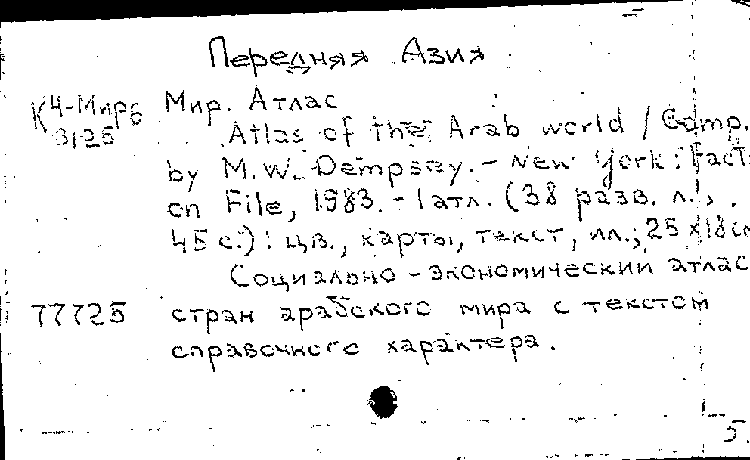 Передняя Азия
К4-Мир6 Мир. Атлас
3125 Atlas of the Arab world / Comp.
by M.W. Dempsey. - New York: Facts
on File, 1983. - 1 атл. (38 разв. л.,
45 с.): цв., карты, текст, ил.; 25×18 см
Социально-экономический атлас
77725 стран арабского мира с текстом
справочного характера.
5.